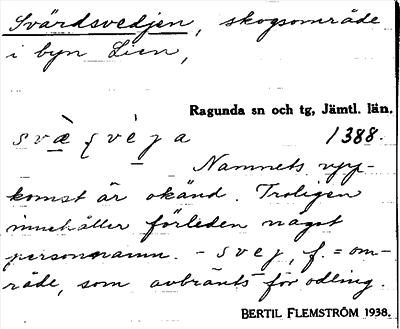 Svärdsvedjen, skogsområde
i byn Lien,
Ragunda sn och tg, Jämtl. län.
1388.
Namnets upp-
komst är okänd. Troligen
innehåller förleden något
personnamn. - svej, f. = om-
råde, som avbränts för odling.
BERTIL FLEMSTRÖM 1938.